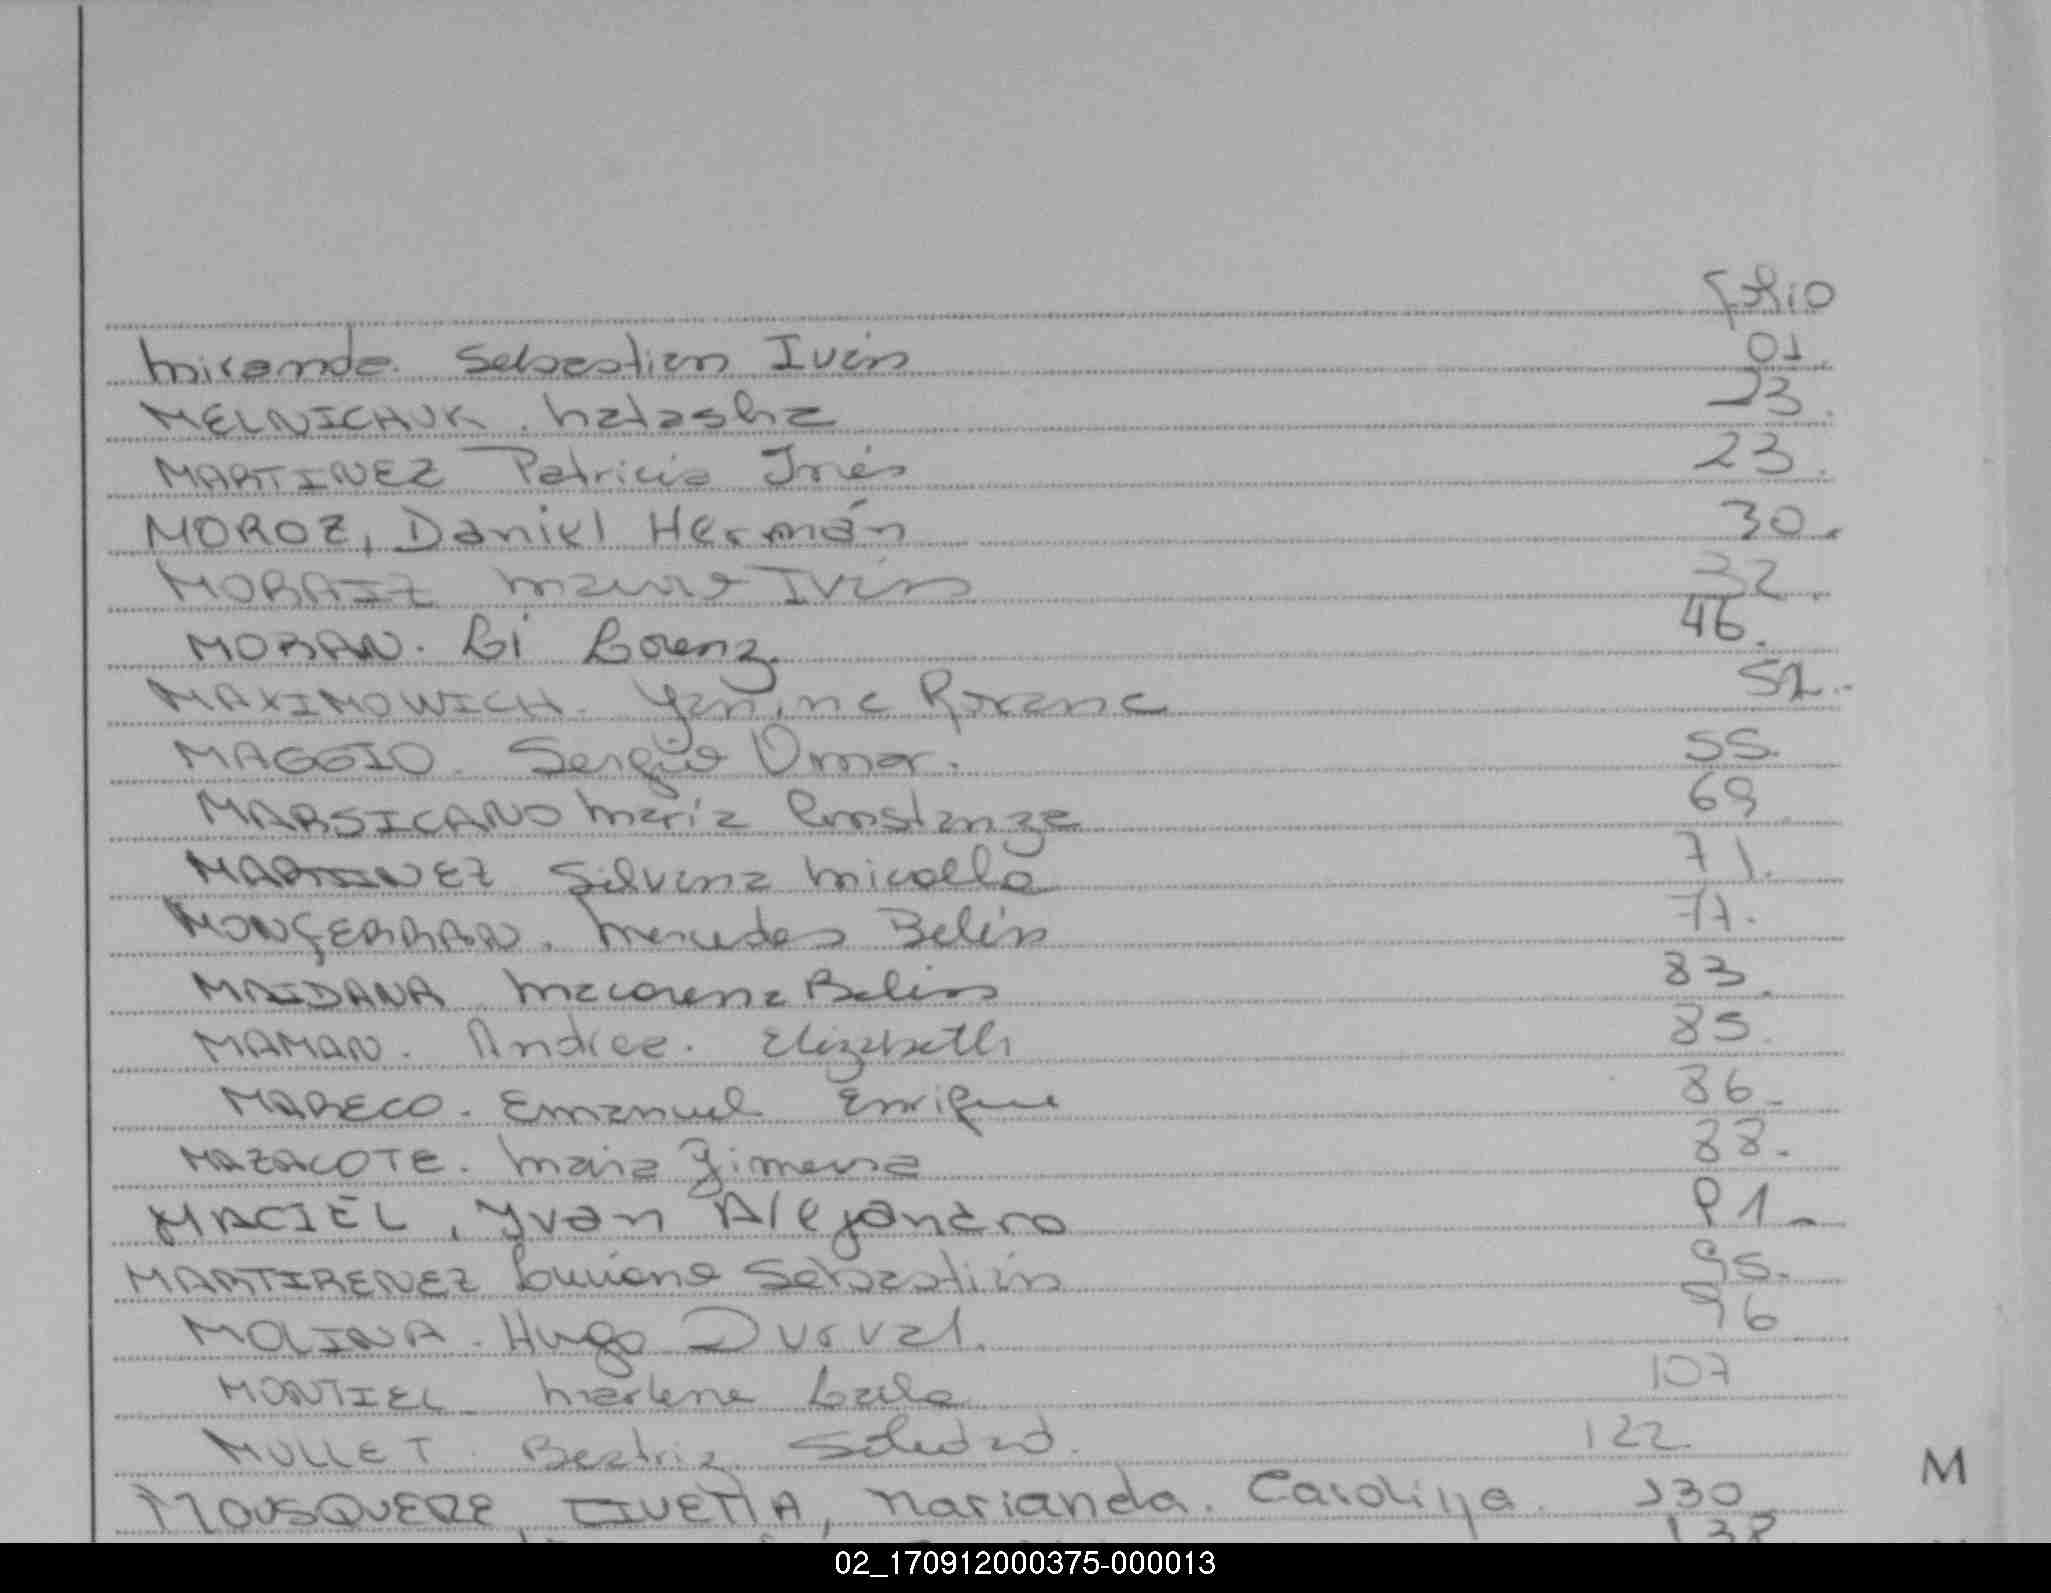 Folio
Miranda Sebastian Iván 01.
MELNICHUK. Natasha 23.
MARTINEZ Patricia Inés 23.
MOROZ, Daniel Hermán 30.
MORAIZ Mauro Iván 32.
MORAN. Li Lorenz 46.
MAXIMOWICH. Yanina Roxana 52.
MAGGIO. Sergio Omar. 55.
MARSICANO Maria Constanza 69
MARTINEZ Silvana Micaella 71.
MONGERRAN. Mercedes Belén 77.
MAIDANA Macarena Belén 83.
MAMAN. Andrea. Elizabeth 85.
MARECO. Emanuel Enrique 86.
MAZACOTE. Maria Jimena 88.
MACIEL, Yvan Alejandro 91
MARTIRENEZ Luciano Sebastián 95.
MOLINA. Hugo Durval. 96
MONTIEL Marlene Laila 107
MULLET Beatriz Soledad. 122.
M
MOUSQUERE, Marianela. Carolina. 130
138
02_170912000375-000013